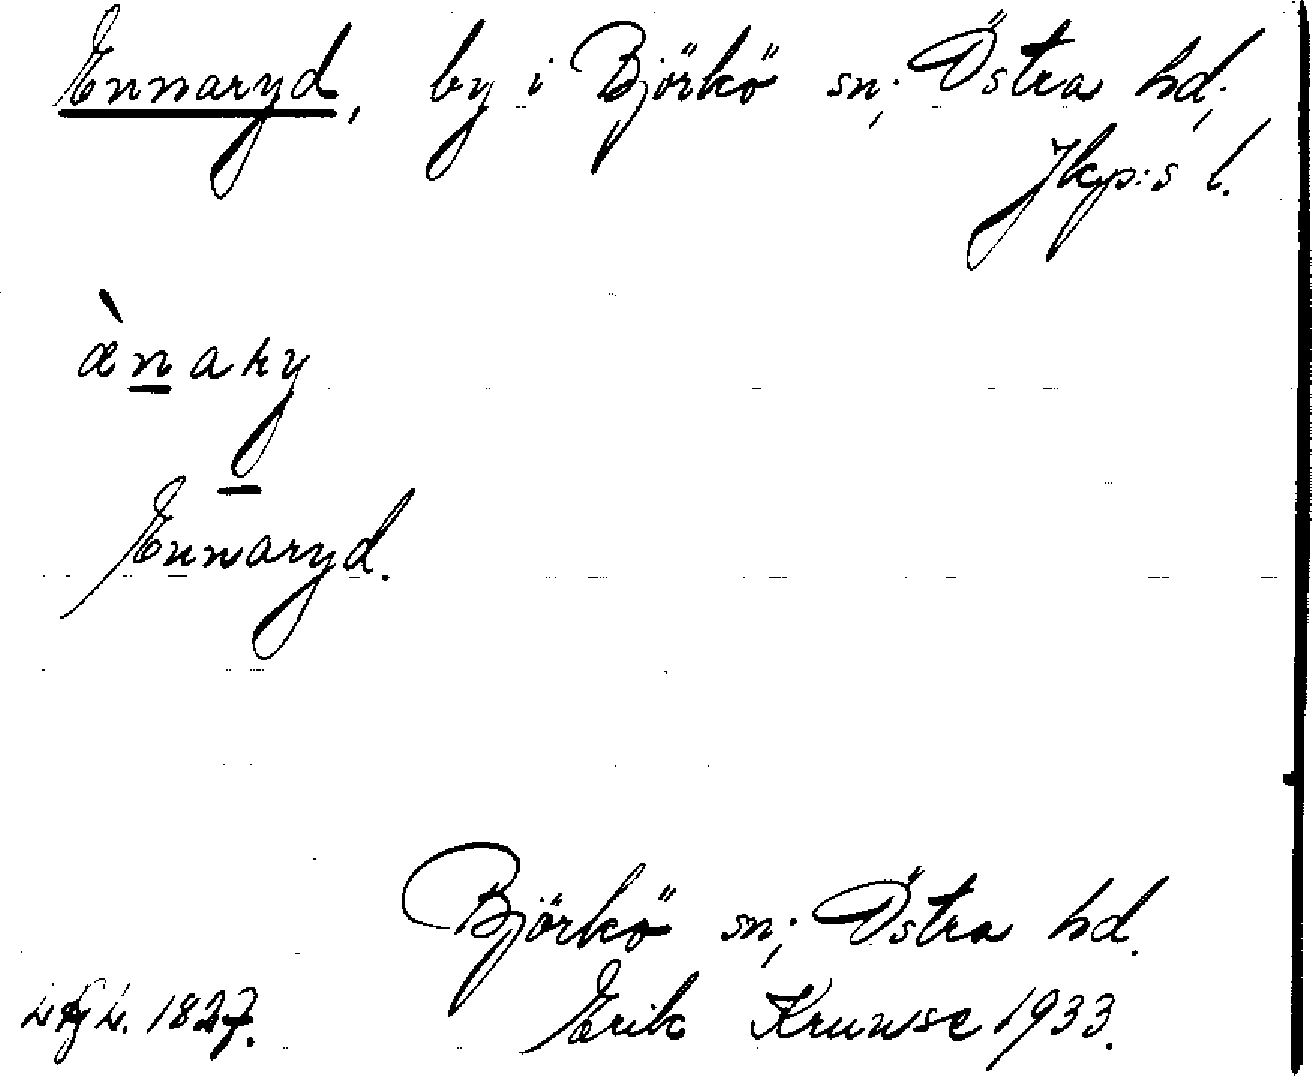 Ennaryd, by i Björkö sn; Östra hd;
Jkp:s l.
ænary
Ennaryd.
Björkö sn; Östra hd.
1827. Erik Kruuse 1933.